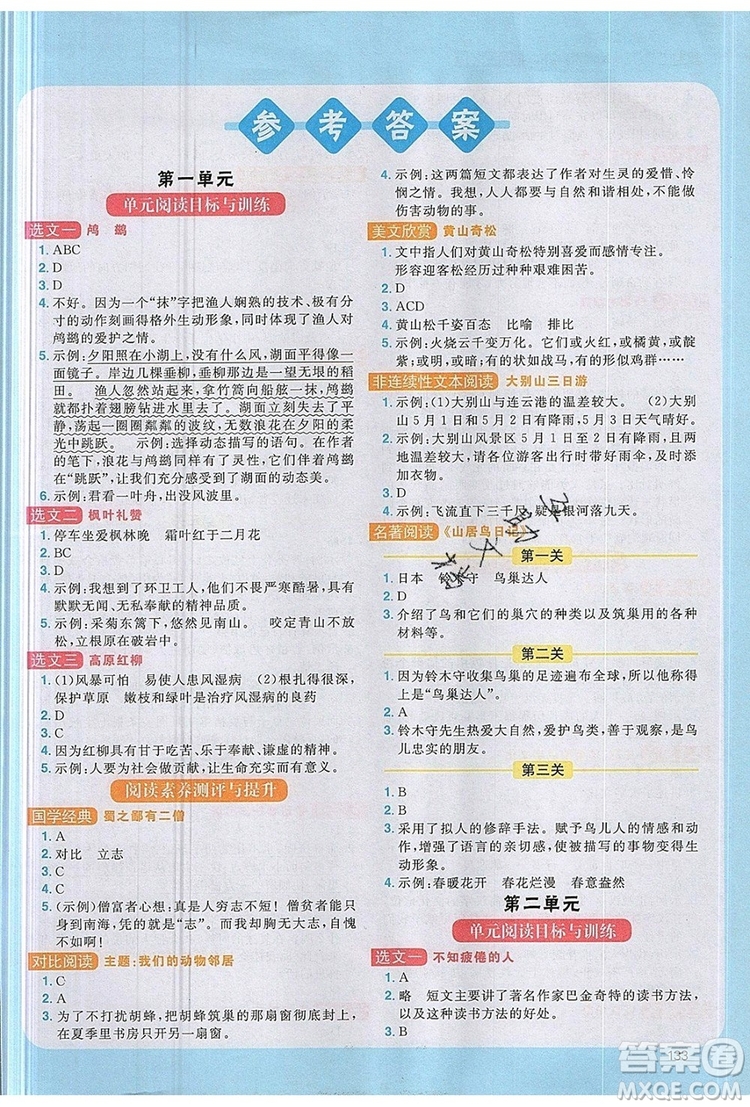 参考答案
第一单元
单元阅读目标与训练
选文一 鸬鹚
1. ABC
2. D
3. D
4. 不好。因为一个“抹”字把渔人娴熟的技术、极有分
寸的动作刻画得格外生动形象,显示了渔人对
鸬鹚的爱护之情。
5. 示例:夕阳照在小湖上,没有什么风,湖面平得像一
面镜子。岸边几棵垂柳,垂柳那边是一望无际的稻
田。 渔人忽然站起来,拿竹篙向船舷一抹,鸬鹚
都扑着翅膀钻进水里去了。湖面立刻失去了平
静,荡起一圈圈粼粼的波纹,无数浪花在夕阳的柔
光中跳跃。 示例:选择动态描写的语句。在作者
的笔下,浪花与鸬鹚一样富有了灵性,它们高兴得
在“跳跃”,让读者充分感受到了湖面的动态美。
6. 示例:君看一叶舟,出没风波里。
选文二 枫叶礼赞
1. 停车坐爱枫林晚 霜叶红于二月花
2. BC
3. D
4. 示例:我想到了环卫工人,他们不畏寒冷酷暑,具有
默默无闻、无私奉献的精神品质。
5. 示例:采菊东篱下,悠然见南山。 咬定青山不放
松,立根原在破岩中。
选文三 高原红柳
1. (1)风暴可怕 易使人患风湿病 (2)根扎得很深,
保护草原 嫩枝和绿叶是治疗风湿病的良药
2. D
3. C
4. 因为红柳具有甘于吃苦、乐于奉献、谦虚的精神。
5. 示例:人要为社会做贡献,让生命充满无限的意义。
阅读素养测评与提升
国学经典 蜀之鄙有二僧
1. A
2. 对比 立志
3. A
4. C
5. (示例)僧富者心想:真是人穷志不短!僧贫者能只
身到南海,凭的就是“志”。而我却没有大志,自愧
不如啊!
对比阅读 主题:我们的动物邻居
1. C
2. A
3. 为了不打扰胡蜂,把胡蜂筑巢的那扇窗彻底封上,
在夏季里书房只开另一扇窗。
4. 示例:这两篇短文都表达了作者对生灵的爱惜、怜
悯之情。我想,人人都要与自然和谐相处,不做
伤害动物的事。
美文欣赏 黄山奇松
1. 文中指人们对黄山奇松特别喜爱而感情专注。
形容迎客松经历了种种艰难困苦。
2. D
3. ACD
4. 黄山松千姿百态 比喻 排比
5. 示例:火烧云千变万化。它们或大或小,或红或靛
或紫;有的状如战马,有的形似鸡群……
非连续性文本阅读 大别山三日游
1. 示例:(1)大别山与连云港的温差较大。 (2)大别
山5月1日和5月2日有降雨,5月3日天气晴好。
2. 示例:大别山风景区5月1日和2日有降雨,且两
地温差较大,请各位游客出行时带好雨伞,及时添
加衣物。
3. D
4. 示例:飞流直下三千尺,疑是银河落九天。
名著阅读 《山居鸟日记》
第一关
1. 日本 铃木守 鸟巢达人
2. A
3. 介绍了鸟和它们的巢穴的种类以及筑巢用的各种
材料等。
第二关
1. 因为铃木守收集鸟巢的足迹遍布全球,所以他被称
为“鸟巢达人”。
2. A
3. 铃木守先生热爱大自然,爱护鸟类,善于观察,是鸟
儿忠实的朋友。
第三关
1. B
2. A
3. 采用了拟人的修辞手法。赋予鸟儿人的情感和动
作,增强了语言的亲切感,使描写的事物变得生
动形象。
4. 示例:春暖花开 春花烂漫 春意盎然
第二单元
单元阅读目标与训练
选文一 不知疲倦的人
1. A
2. 略 短文主要讲了著名作家巴金奇特的读书方法,
以及读书方法的好处。
3. B
133
答案圈
MXQE.COM